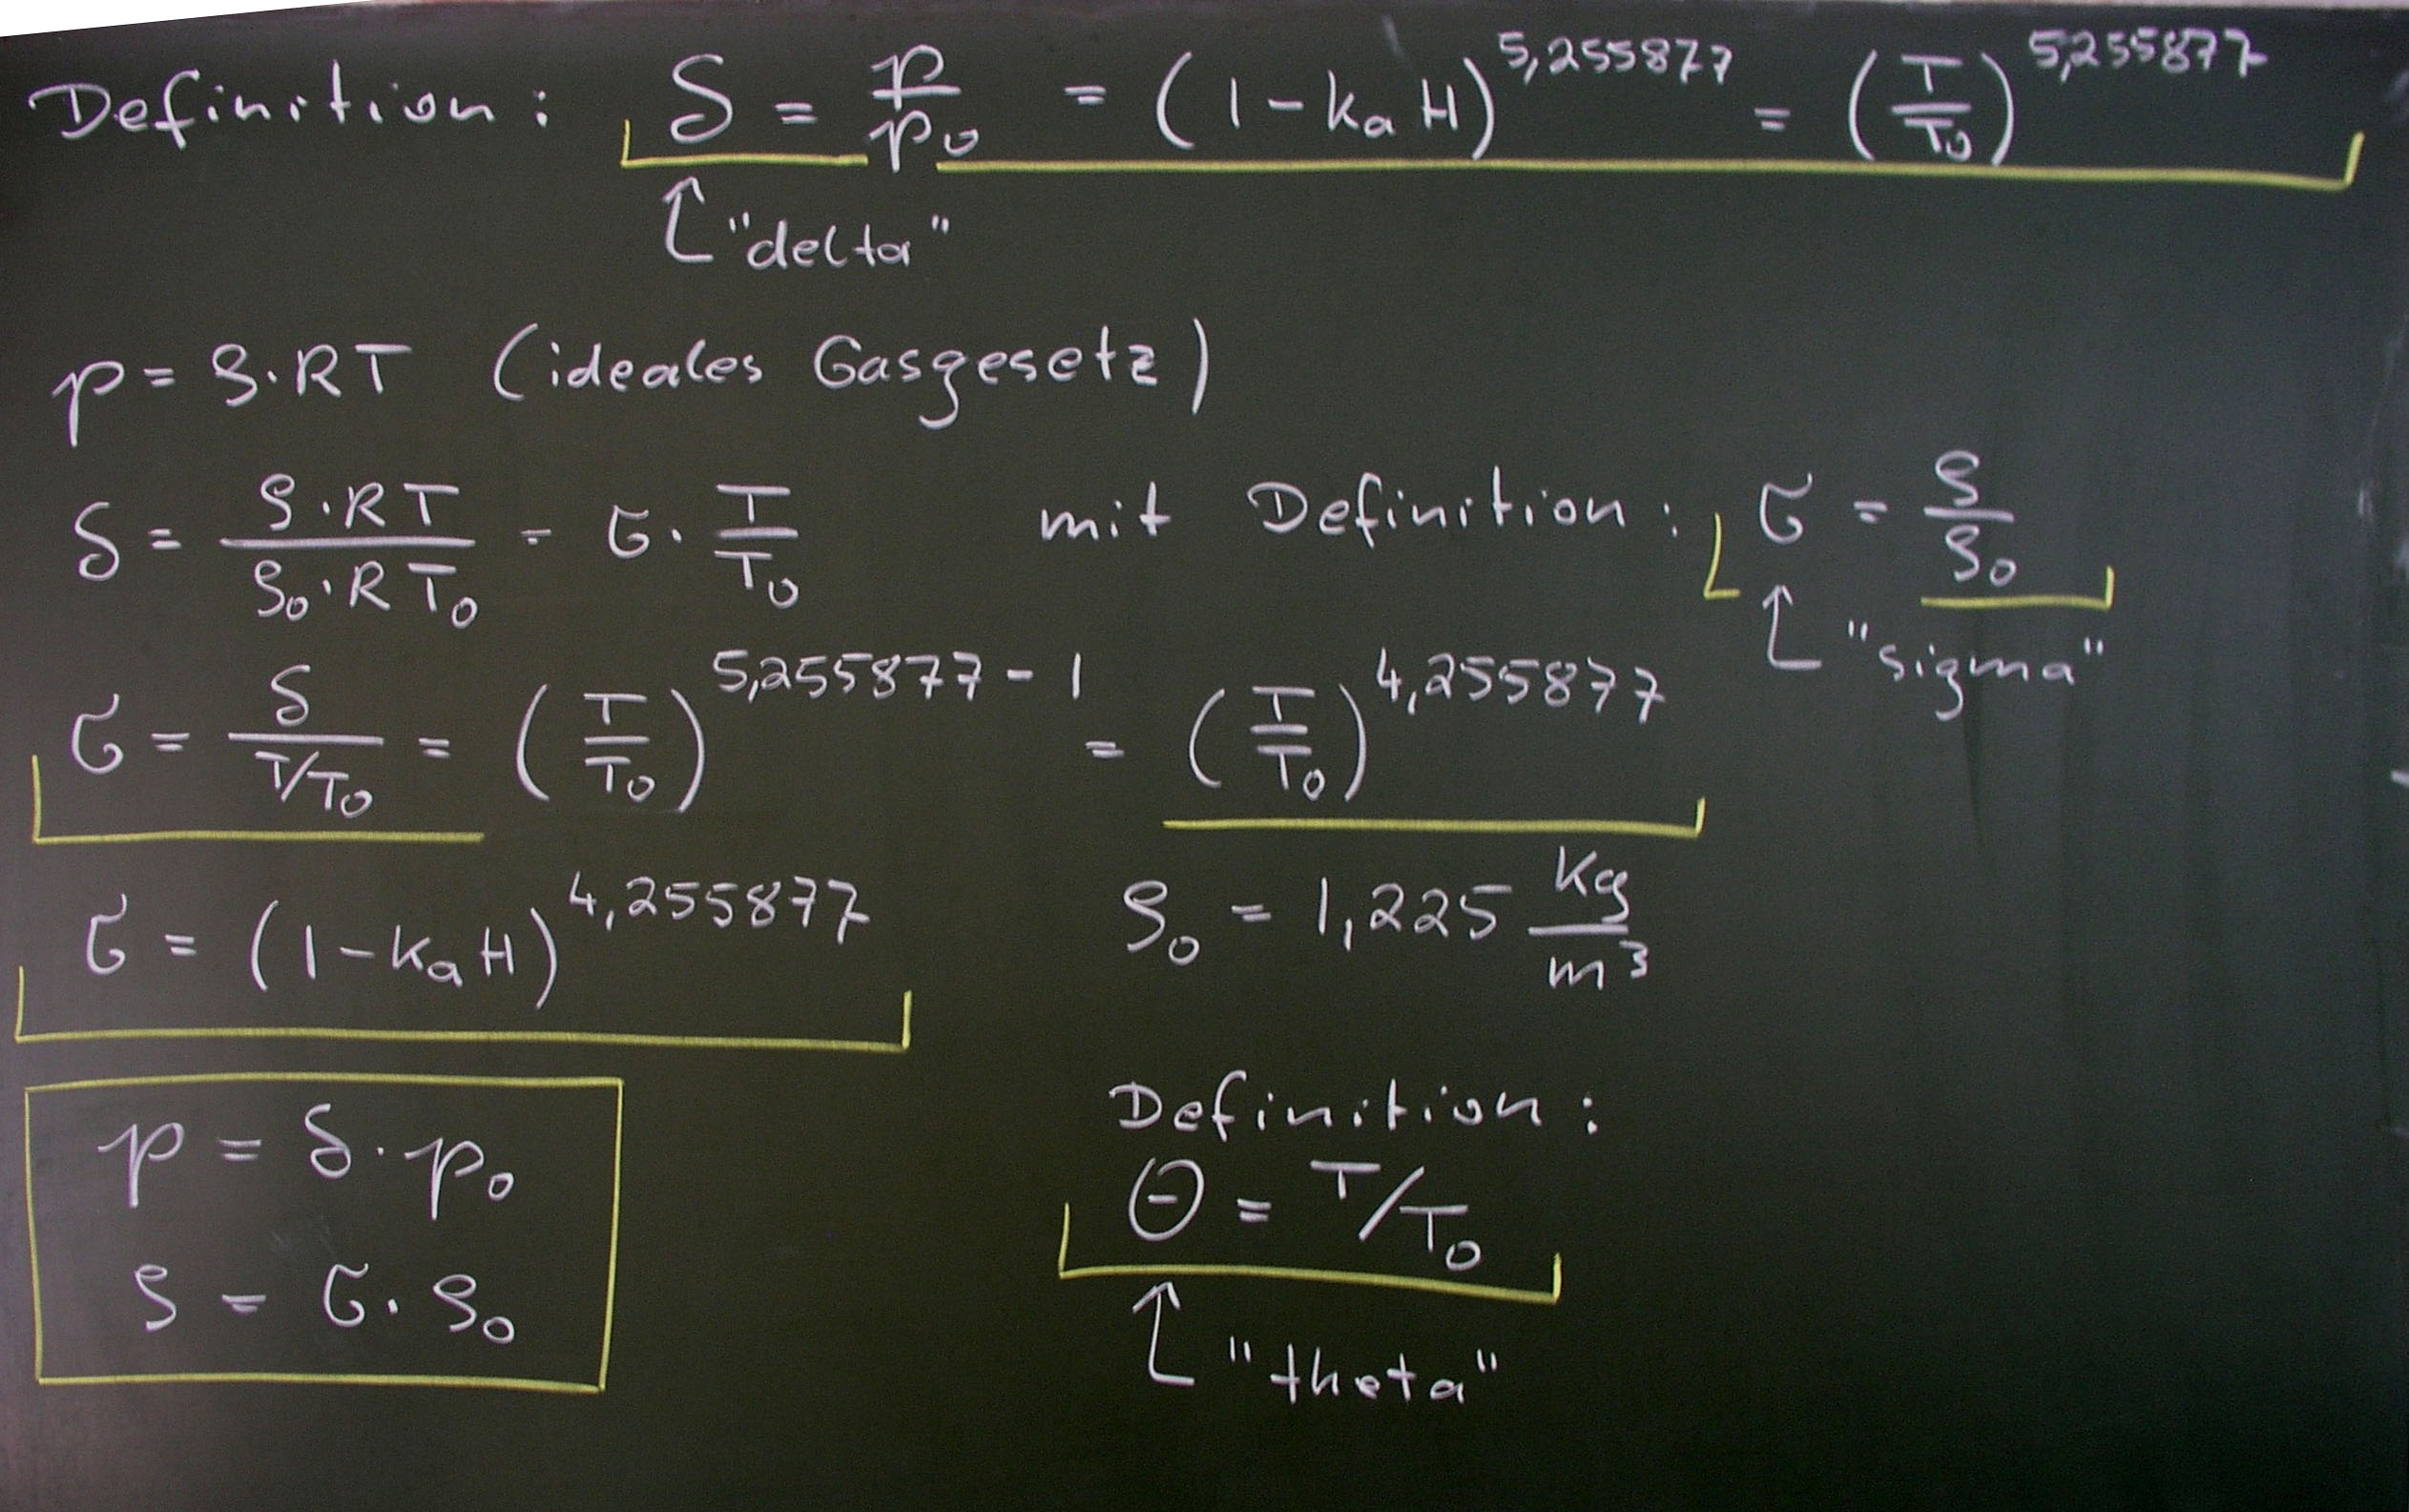 Definition: δ = p/p₀ = (1 - kₐ H)^5,255877 = (T/T₀)^5,255877
"delta"
p = ρ · RT (ideales Gasgesetz)
δ = (ρ · RT)/(ρ₀ · RT₀) = σ · T/T₀ mit Definition: σ = ρ/ρ₀
"sigma"
σ = δ/(T/T₀) = (T/T₀)^(5,255877 - 1) = (T/T₀)^4,255877
σ = (1 - kₐ H)^4,255877 ρ₀ = 1,225 kg/m³
Definition:
p = δ · p₀
Θ = T/T₀
ρ = σ · ρ₀
"theta"